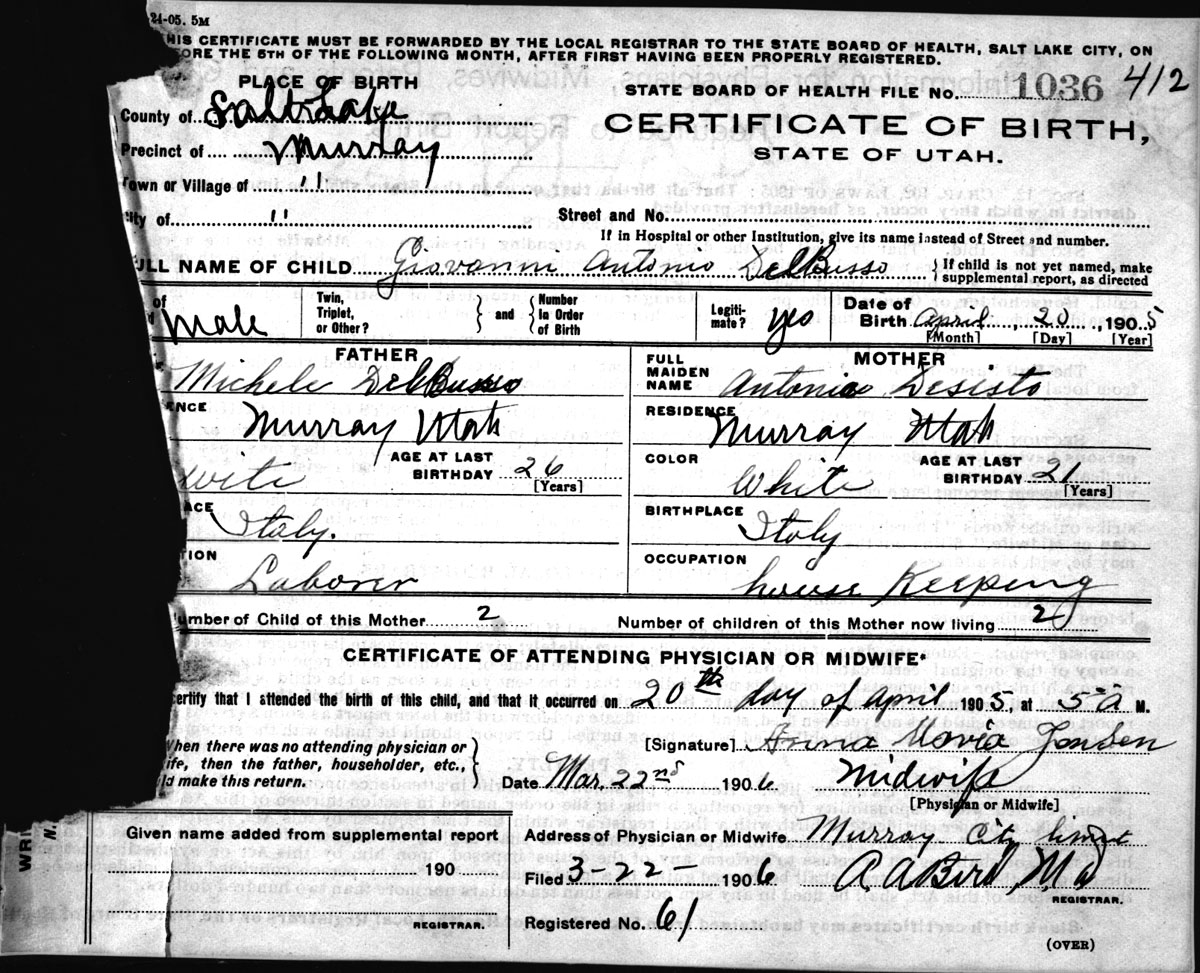 24-05. 5M
HIS CERTIFICATE MUST BE FORWARDED BY THE LOCAL REGISTRAR TO THE STATE BOARD OF HEALTH, SALT LAKE CITY, ON
ORE THE 5TH OF THE FOLLOWING MONTH, AFTER FIRST HAVING BEEN PROPERLY REGISTERED.
PLACE OF BIRTH
STATE BOARD OF HEALTH FILE No. 1036 412
County of Salt Lake
CERTIFICATE OF BIRTH,
Precinct of Murray
STATE OF UTAH.
Town or Village of "
City of "
Street and No.
If in Hospital or other Institution, give its name instead of Street and number.
ULL NAME OF CHILD Giovanni Antonio DelBusso { If child is not yet named, make supplemental report, as directed
of Male
Twin, Triplet, or Other? } and { Number in Order of Birth
Legiti-mate? yes
Date of Birth April, 20, 1905
[Month] [Day] [Year]
FATHER
Michele DelBusso
ENCE Murray Utah
wite AGE AT LAST BIRTHDAY 26
[Years]
ACE Italy.
TION Laborer
MOTHER
FULL MAIDEN NAME Antonia Desisto
RESIDENCE Murray Utah
COLOR White AGE AT LAST BIRTHDAY 21
[Years]
BIRTHPLACE Italy
OCCUPATION house Keeping
Number of Child of this Mother 2 Number of children of this Mother now living 2
CERTIFICATE OF ATTENDING PHYSICIAN OR MIDWIFE*
certify that I attended the birth of this child, and that it occurred on 20th day of April 1905, at 5 a M.
When there was no attending physician or
ife, then the father, householder, etc.,
ld make this return.
[Signature] Anna Maria Jensen
Date Mar. 22nd 1906 Midwife
[Physician or Midwife]
Given name added from supplemental report
190
REGISTRAR.
Address of Physician or Midwife Murray City limit
Filed 3-22- 1906 A A Bird Md
REGISTRAR.
Registered No. 61
(OVER)
WRI
N.